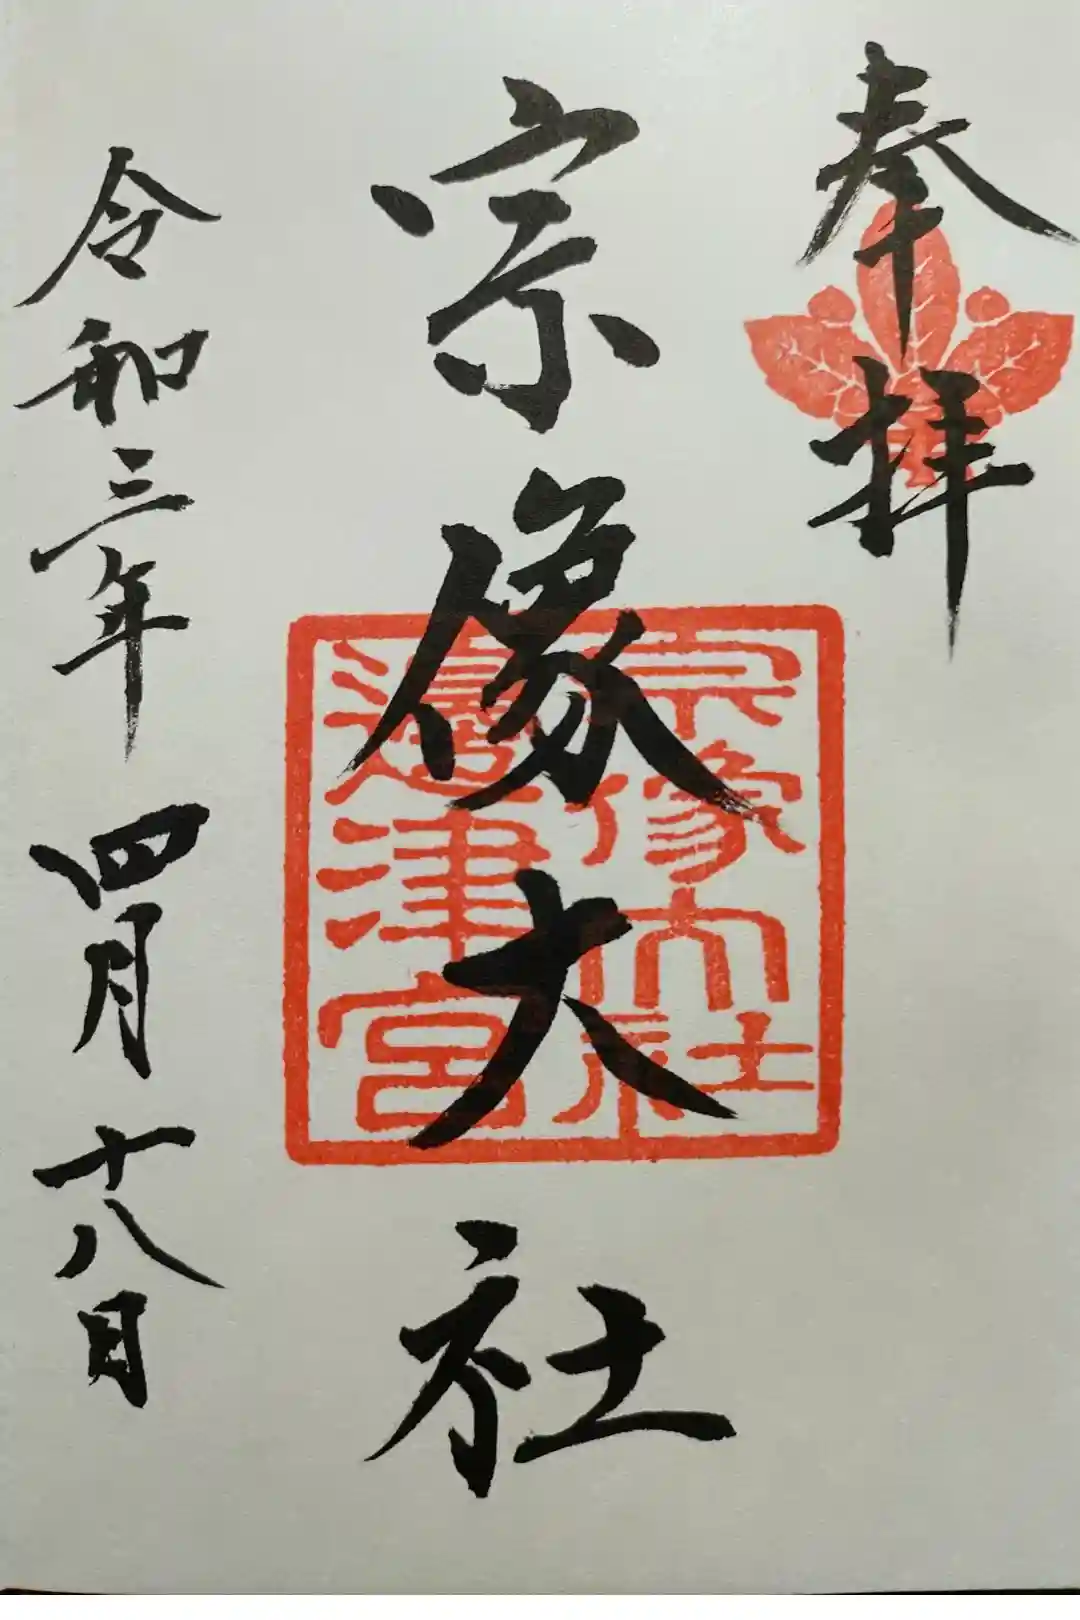 奉拝
宗像大社
宗像大社
邉津宮
令和三年四月十八日